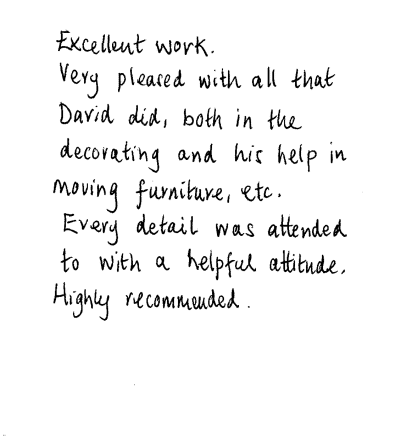 Excellent work.
Very pleased with all that
David did, both in the
decorating and his help in
moving furniture, etc.
Every detail was attended
to with a helpful attitude.
Highly recommended.